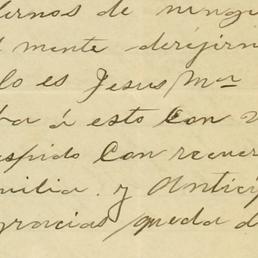 dernos de ningu
mente derijirn
lo es Jesus Ma
ba á esto con
spido con recuer
milia. y Antici
gracias queda d